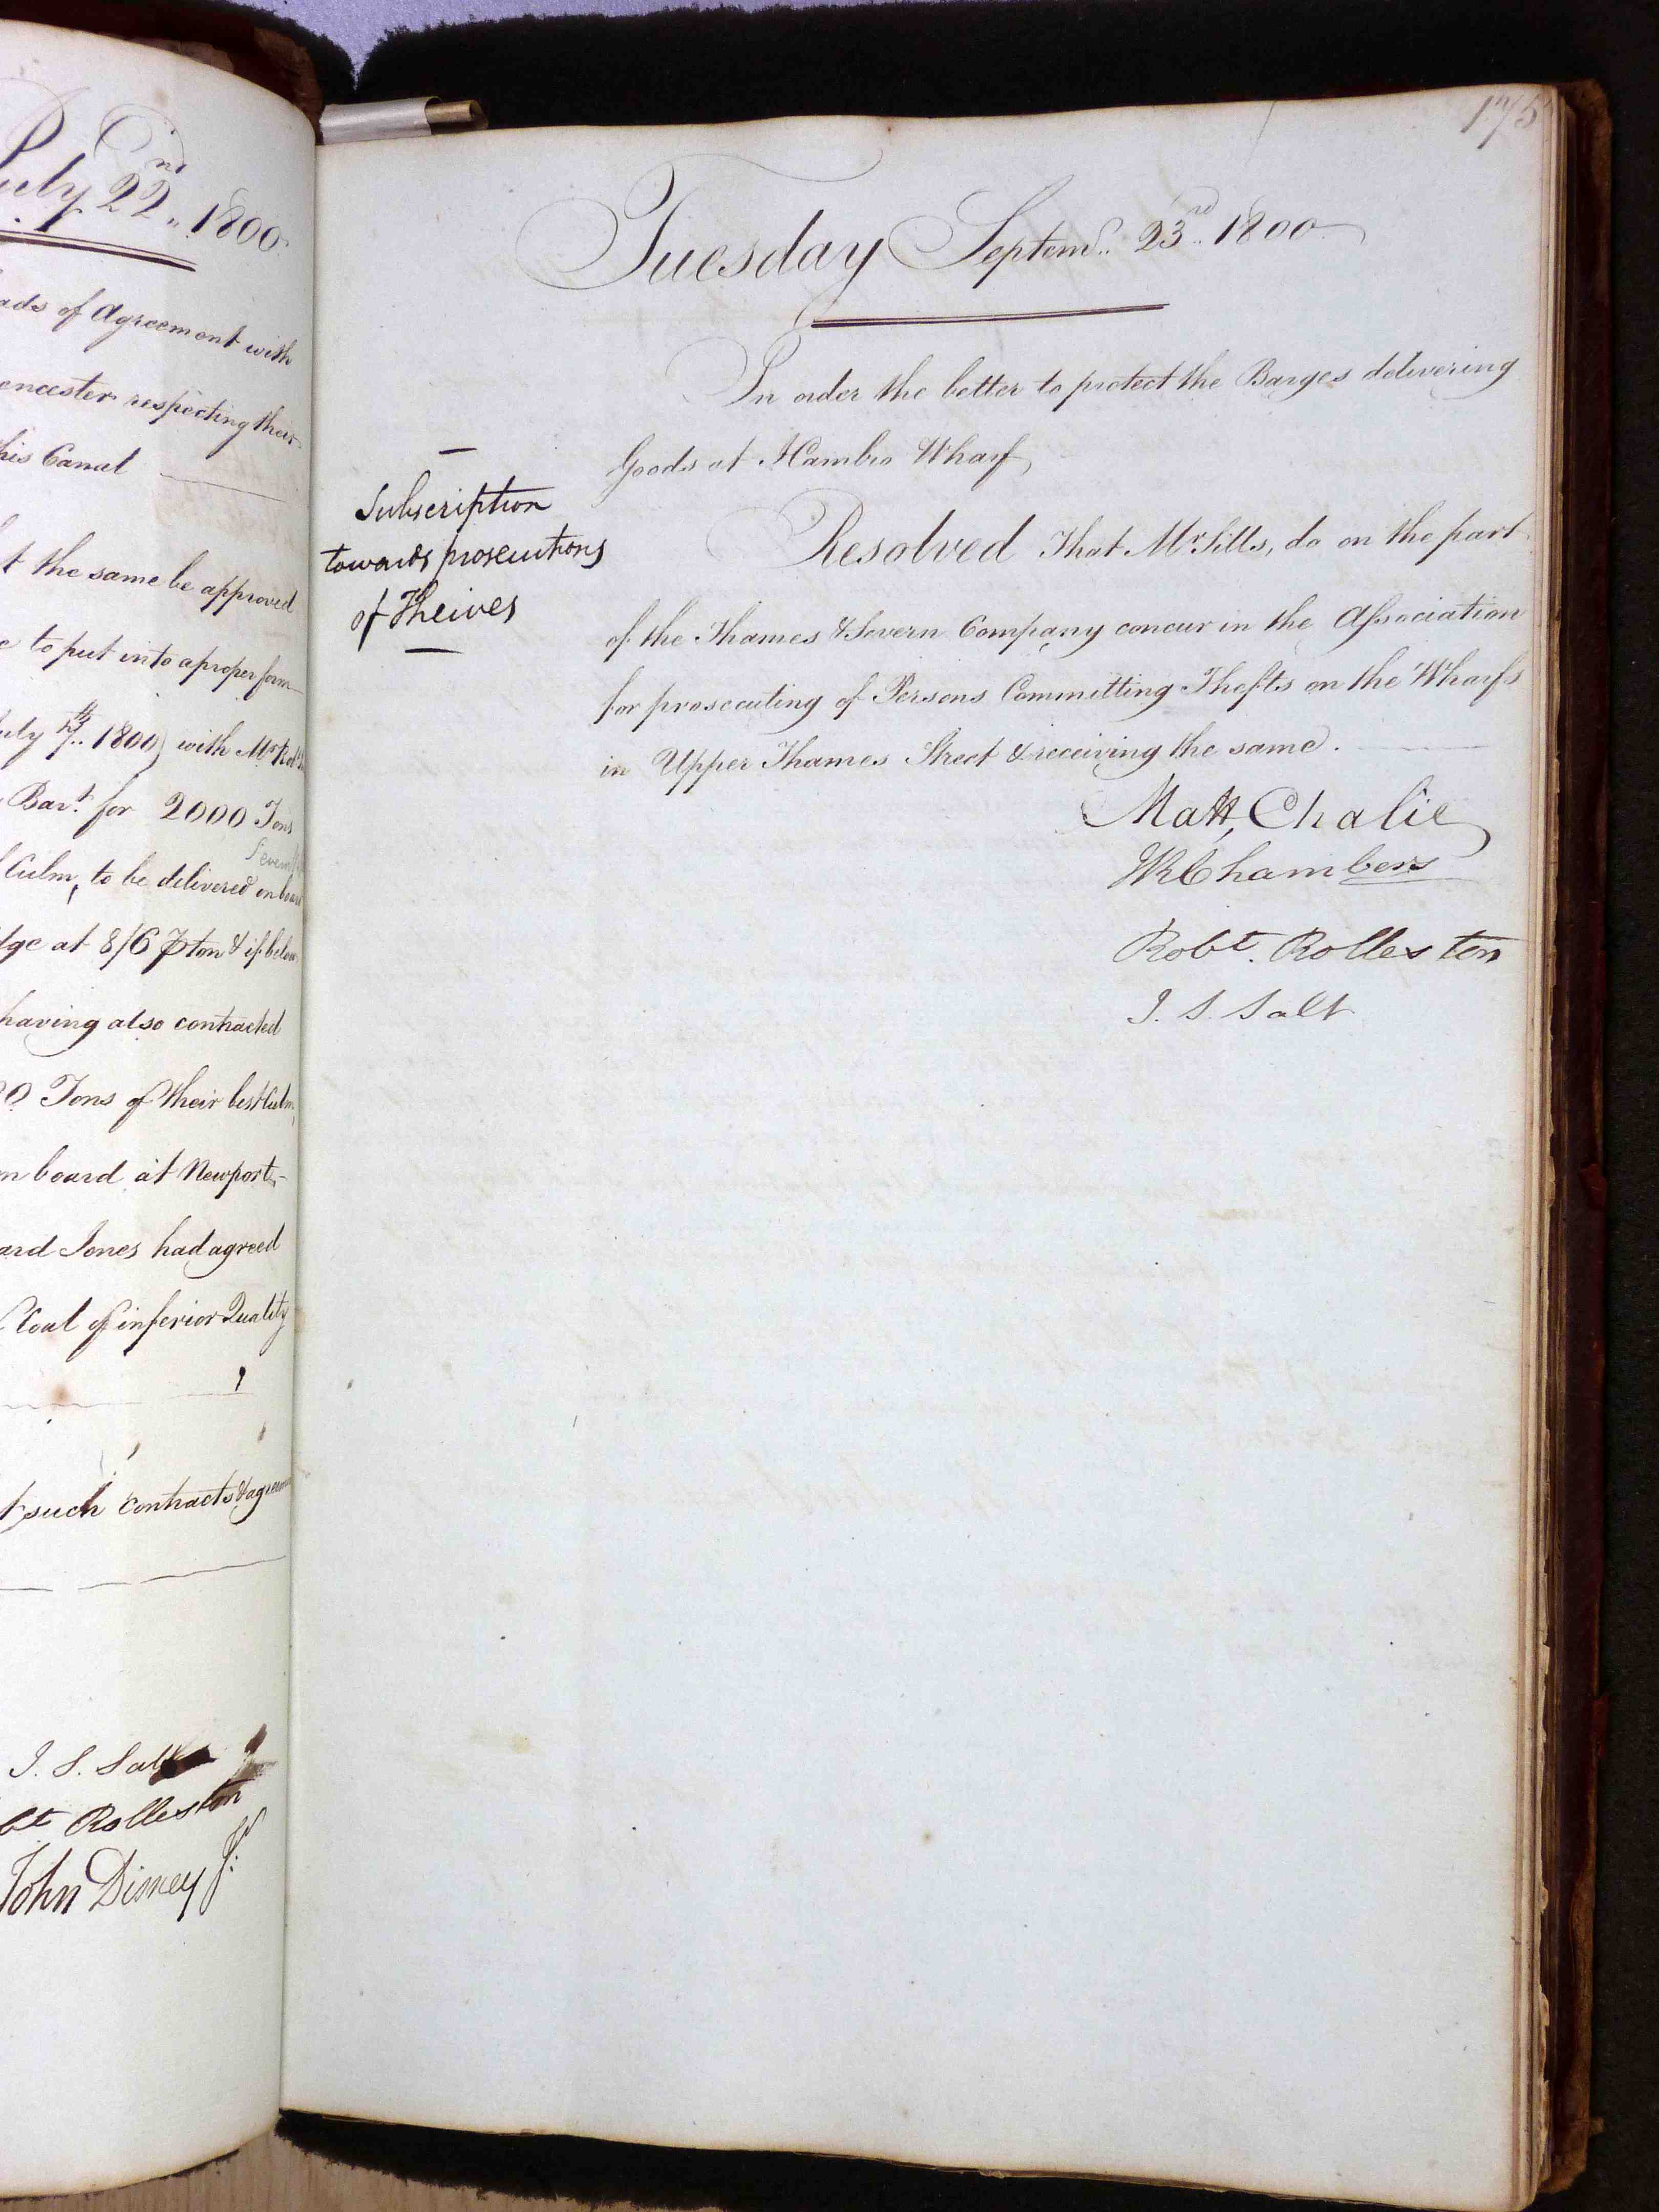 July 22nd 1800.
ads of Agreement with
encester respecting their
his Canal
t the same be approved
e to put into a proper form
uly 17th 1800) with Mr
Bart. for 2000 Tons
Severn
Culm, to be delivered on board
dge at 8/6 ⅌ ton & if below
having also contracted
00 Tons of their best Culm,
n board at Newport,
ard Jones had agreed
Coal of inferior Quality
t such contracts &
J. S. Salt
bt Rolleston
John Disney Jr.
175
Tuesday Septemr. 23rd 1800
In order the better to protect the Barges delivering
Goods at Hambro Wharf,
Subscription
towards prosecutions
of Theives
Resolved That Mr Sills, do on the part
of the Thames & Severn Company concur in the Association
for prosecuting of Persons Committing Thefts on the Wharfs
in Upper Thames Street & receiving the same.
Matt, Chalie
WR Chambers
Robt. Rolleston
J. S. Salt